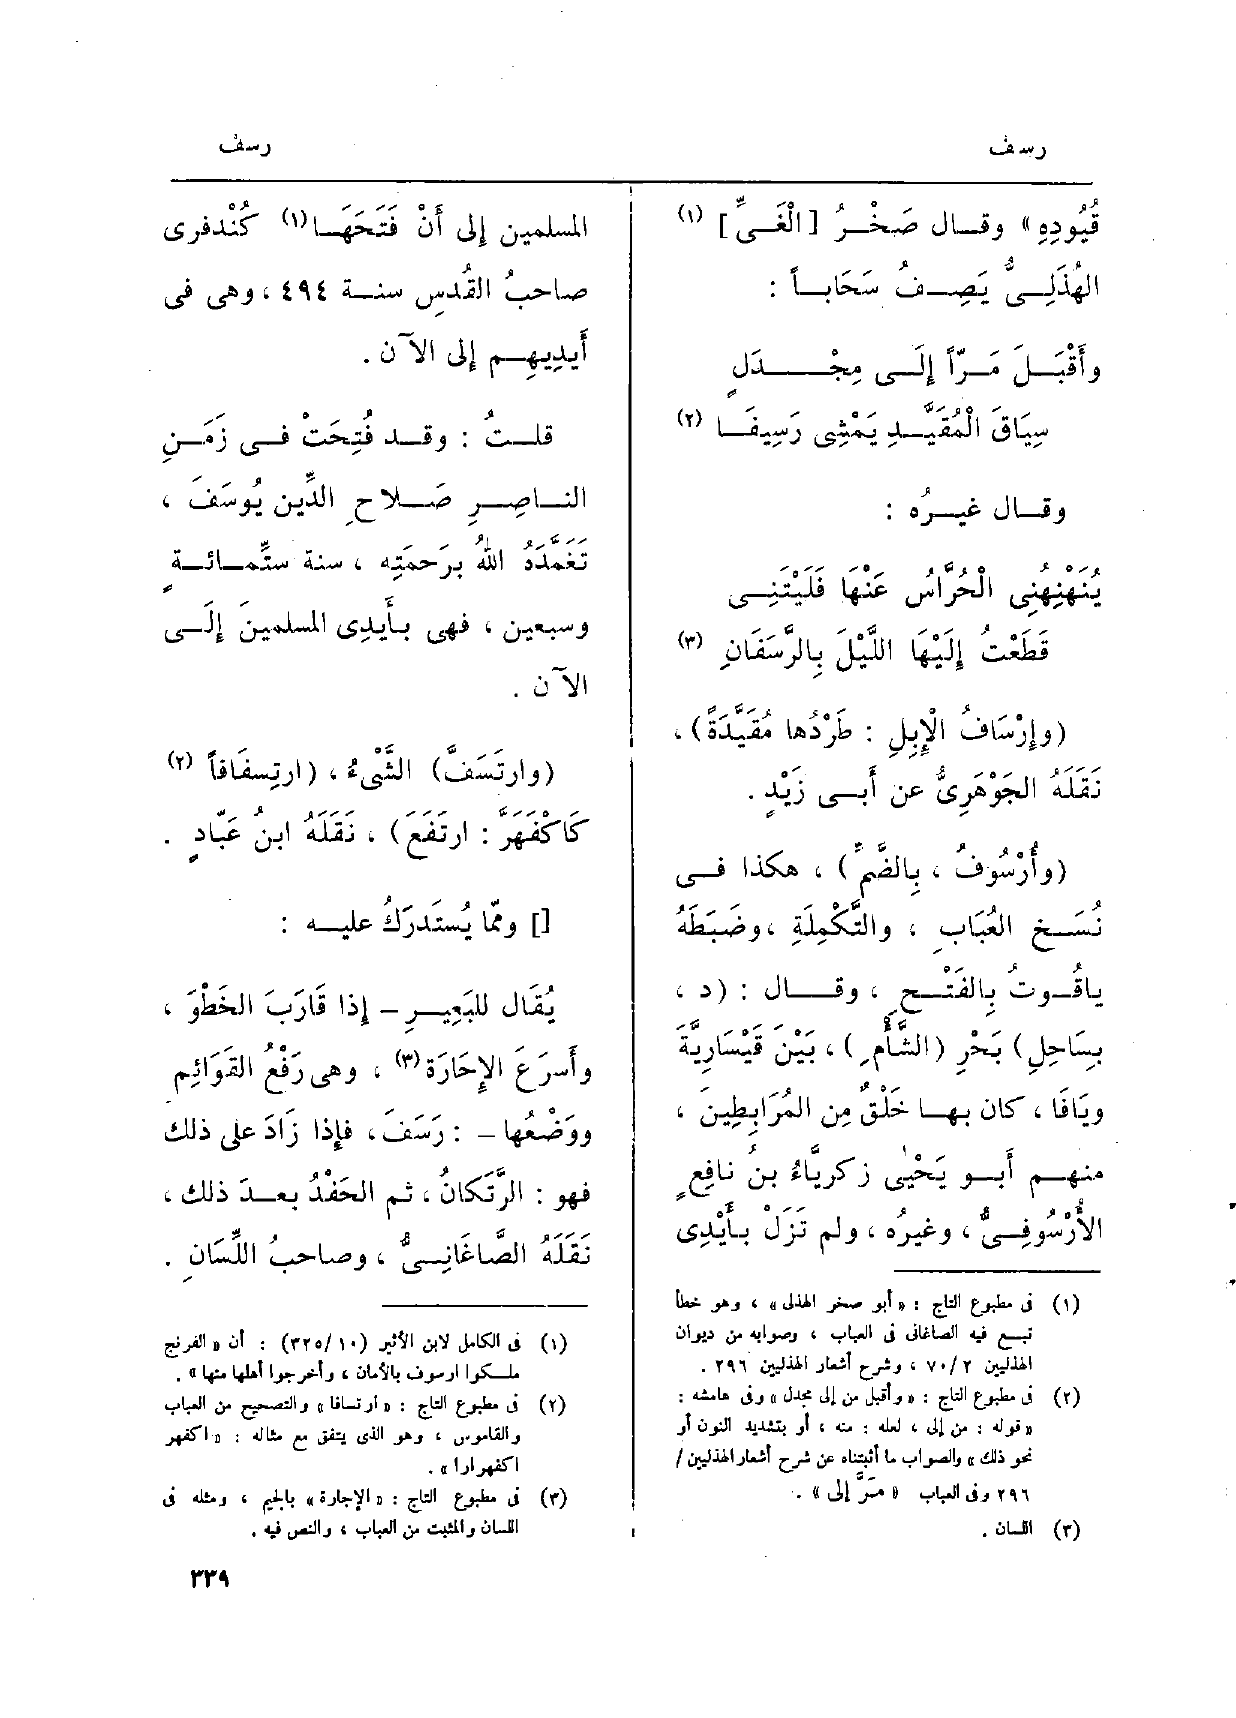 رسف
رسف
قُيُودِهِ» وقال صَخْرُ [الْغَىِّ] (١)
الهُذَلِىُّ يَصِفُ سَحَاباً :
وأَقْبَلَ مَرّاً إِلَى مِجْدَلٍ
سِيَاقَ الْمُقَيَّدِ يَمْشِى رَسِيفَا (٢)
وقال غيرُه :
يُنَهْنِهُنِى الْحُرَّاسُ عَنْهَا فَلَيْتَنِى
قَطَعْتُ إِلَيْهَا اللَّيْلَ بِالرَّسَفَانِ (٣)
(وإِرْسَافُ الْإِبِلِ : طَرْدُها مُقَيَّدَةً) ،
نَقَلَهُ الجَوْهَرِىُّ عن أَبى زَيْدٍ .
(وأُرْسُوفُ ، بِالضَّمِّ) ، هكذا فى
نُسَخِ العُبَابِ ، والتَّكْمِلَةِ ، وضَبَطَهُ
ياقُوتُ بِالفَتْحِ ، وقال : (د ،
بِسَاحِلِ) بَحْرِ (الشَّأْمِ) ، بَيْنَ قَيْسَارِيَّةَ
ويَافَا ، كان بها خَلْقٌ مِن المُرَابِطِينَ ،
منهم أَبو يَحْيَى زكرِيَّاءُ بنُ نافِعٍ
الأَرْسُوفِىُّ ، وغيرُه ، ولم تَزَلْ بأَيْدِى
(١) فى مطبوع التاج : «أبو صخر الهذلى» ، وهو خطأ
تبع فيه الصاغانى فى العباب ، وصوابه من ديوان
الهذليين ٧٠/٢ ، وشرح أشعار الهذليين ٢٩٦ .
(٢) فى مطبوع التاج : «وأقبل من إلى مجدل» وفى هامشه :
«قوله : من إلى ، لعله : منه ، أو بتشديد النون أو
نحو ذلك» والصواب ما أثبتناه عن شرح أشعار الهذليين/
٢٩٦ وفى العباب «مَرَّ إلى» .
(٣) اللسان .
المسلمين إِلى أَنْ فَتَحَهَا(١) كُنْدفرى
صاحبُ القُدسِ سنة ٤٩٤ ، وهى فى
أَيدِيهِم إِلى الآن .
قلتُ : وقد فُتِحَتْ فى زَمَنِ
الناصِرِ صَلاحِ الدِّين يُوسَفَ ،
تَغَمَّدَهُ اللهُ برَحمَتِه ، سنة ستِّمائةٍ
وسبعين ، فهى بأَيدِى المسلمينَ إِلَى
الآن .
(وارتَسَفَّ) الشَّىْءُ ، (ارتِسفَافاً (٢)
كَاكْفَهَرَّ : ارتَفَعَ) ، نَقَلَهُ ابنُ عَبَّادٍ .
[] وممّا يُستَدرَكُ عليه :
يُقَال للبَعِيرِ – إِذا قَارَبَ الخَطْوَ ،
وأَسرَعَ الإِحَارَةَ(٣) ، وهى رَفْعُ القَوَائِمِ
ووَضْعُها – : رَسَفَ ، فإِذا زَادَ على ذلك
فهو : الرَّتَكانُ ، ثم الحَفْدُ بعدَ ذلك ،
نَقَلَهُ الصَّاغَانِىُّ ، وصاحبُ اللِّسَانِ .
(١) فى الكامل لابن الأثير (٣٢٥/١٠) : أن «الفرنج
ملكوا ارسوف بالأمان ، وأخرجوا أهلها منها» .
(٢) فى مطبوع التاج : «ارتسافا» والتصحيح من العباب
والقاموس ، وهو الذى يتفق مع مثاله : «اكفهر
اكفهرارا» .
(٣) فى مطبوع التاج : «الإجارة» بالجيم ، ومثله فى
اللسان والمثبت من العباب ، والنص فيه .
٣٣٩